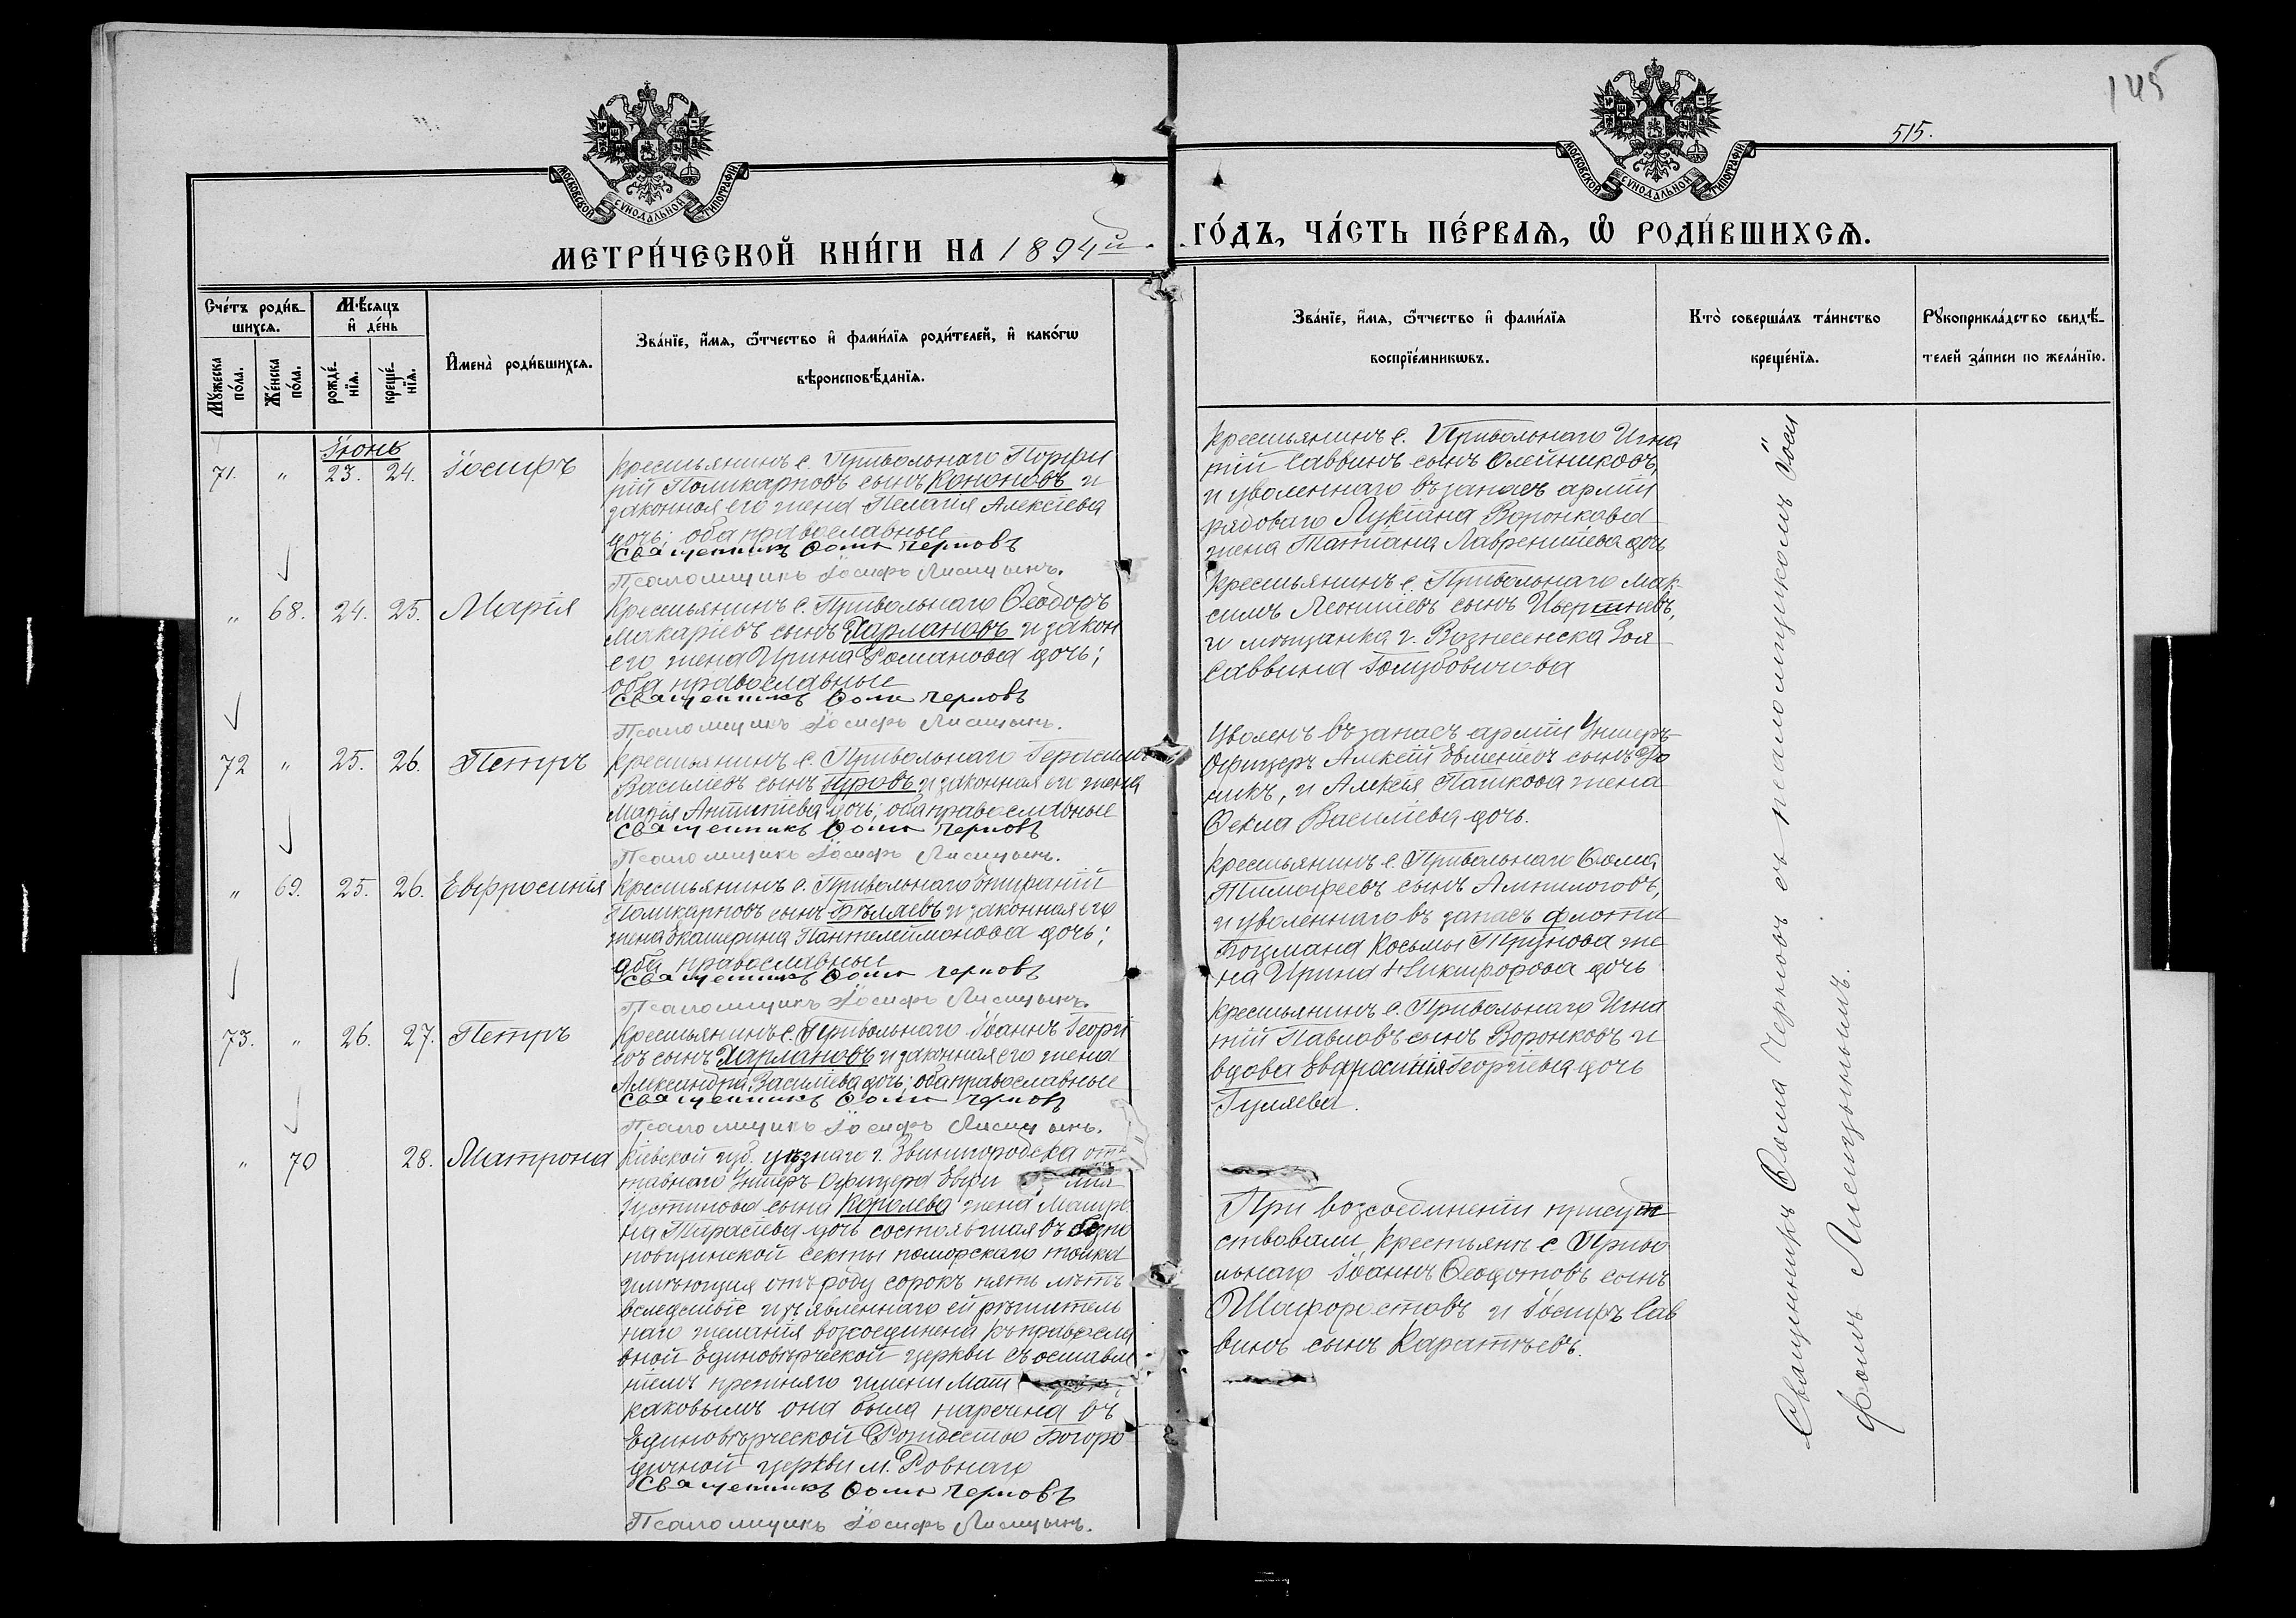 145
515.
МОСКОВСКОЙ СУНОДАЛЬНОЙ ТИПОГРАФІИ
МОСКОВСКОЙ СУНОДАЛЬНОЙ ТИПОГРАФІИ
МЕТРИ́ЧЕСКОЙ КНИ́ГИ НА 1894й
ГО́ДЪ, ЧА́СТЬ ПЕ́РВАѦ, Ѡ҆ РОДИ́ВШИХСѦ.
Сче́тъ роди́в-
шихсѧ.
Мѣ́сѧцъ
и҆ де́нь
Мꙋ́жеска по́ла.
Же́нска по́ла.
рожде́-
нїѧ.
креще́-
нїѧ.
И҆мена̀ роди́вшихсѧ.
Зва́нїе, и҆́мѧ, ѻ҆́тчество и҆ фамѝлїѧ роди́телей, и҆ како́гѡ
вѣроисповѣ́данїѧ.
Зва́нїе, и҆́мѧ, ѻ҆́тчество и҆ фамѝлїѧ
воспрїе́мникѡвъ.
Кто̀ соверша́лъ та́инство
креще́нїѧ.
Рꙋкоприкла́дство свидѣ́-
телей за́писи по жела́нїю.
Іюнь
71. " 23. 24. Іосифъ
Крестьянинъ с. Привольнаго Порфи
рій Поликарповъ сынъ Кононовъ и
законная его жена Пелагія Алексіева
дочь; оба православные
Священникъ Ѳома Черновъ
Псаломщикъ Іосифъ Лисицынъ.
Крестьянинъ с. Привольнаго Игна
тій Саввинъ сынъ Олейниковъ,
и уволеннаго въ запасъ арміи
рядоваго Лукіана Воронкова
жена Татіана Лаврентіева дочь
" 68. 24. 25. Марія
Крестьянинъ с. Привольнаго Ѳеодоръ
Макаріевъ сынъ Харлановъ и закон
его жена Ирина Романова дочь;
оба православные
Священникъ Ѳома Черновъ
Псаломщикъ Іосифъ Лисицынъ.
Крестьянинъ с. Привольнаго Мак-
симъ Леонтіевъ сынъ
и мѣщанка г. Вознесенска Зоя
Саввина Голубовичова
72 " 25. 26. Петръ
Крестьянинъ с. Привольнаго Герасимъ
Василіевъ сынъ Гуровъ и законная его жена
Марія Антипіева дочь; оба православные
Священникъ Ѳома Черновъ
Псаломщикъ Іосифъ Лисицынъ.
Уволенъ въ запасъ арміи Унтеръ-
Офицеръ Алексій Евменіевъ сынъ
и Алексія Пашкова жена
Ѳекла Василіева дочь.
" 69. 25. 26. Евфросинія
Крестьянинъ с. Привольнаго Спиранiй
Поликарповъ сынъ Бѣляевъ и законная его
жена Екатерина Пантелеймонова дочь;
оба православные
Священникъ Ѳома Черновъ
Псаломщикъ Іосифъ Лисицынъ.
Крестьянинъ с. Привольнаго Ѳома
Тимофеевъ сынъ Ампилоговъ,
и уволеннаго въ запасъ флота
Боцмана Косьмы Трунова же
на Ирина Никифорова дочь
73. " 26. 27. Петръ
Крестьянинъ с. Привольнаго Іоаннъ Георгі
евъ сынъ Харлановъ и законная его жена
Александра Василіева дочь; оба православные
Священникъ Ѳома Черновъ
Псаломщикъ Іосифъ Лисицынъ.
Крестьянинъ с. Привольнаго Игна
тій Павловъ сынъ Воронковъ и
вдова Евфросинія Георгіева дочь
Гуляева.
" 70 28. Матрона
Кіевской губ. уѣзнаго г. Звенигородска от
ставнаго Унтеръ-Офицера Евфи
Іустинова сына Королева жена Матро
на Тарасіева дочь состоявшая въ безпо
повщинской секты поморскаго толка
имѣющая отъ роду сорокъ пять лѣтъ
вследствіе изъявленнаго ей рѣшитель
наго желанія возсоединена къ правосла
вной Единовѣрческой церкви съ оставле
ніемъ прежняго имени Мат
каковымъ она была наречена въ
Единовѣрческой Рождество Богоро
дичной церкви м. Ровнаго
Священникъ Ѳома Черновъ
Псаломщикъ Іосифъ Лисицынъ.
При возсоединеніи присут
ствовали крестьяне с. Приво
льнаго Іоаннъ Ѳеодотовъ сынъ
Шафоростовъ и Іосифъ Сав
винъ сынъ Каратѣевъ.
Священникъ Ѳома Черновъ съ псаломщикомъ Іоси
фомъ Лисицынымъ.